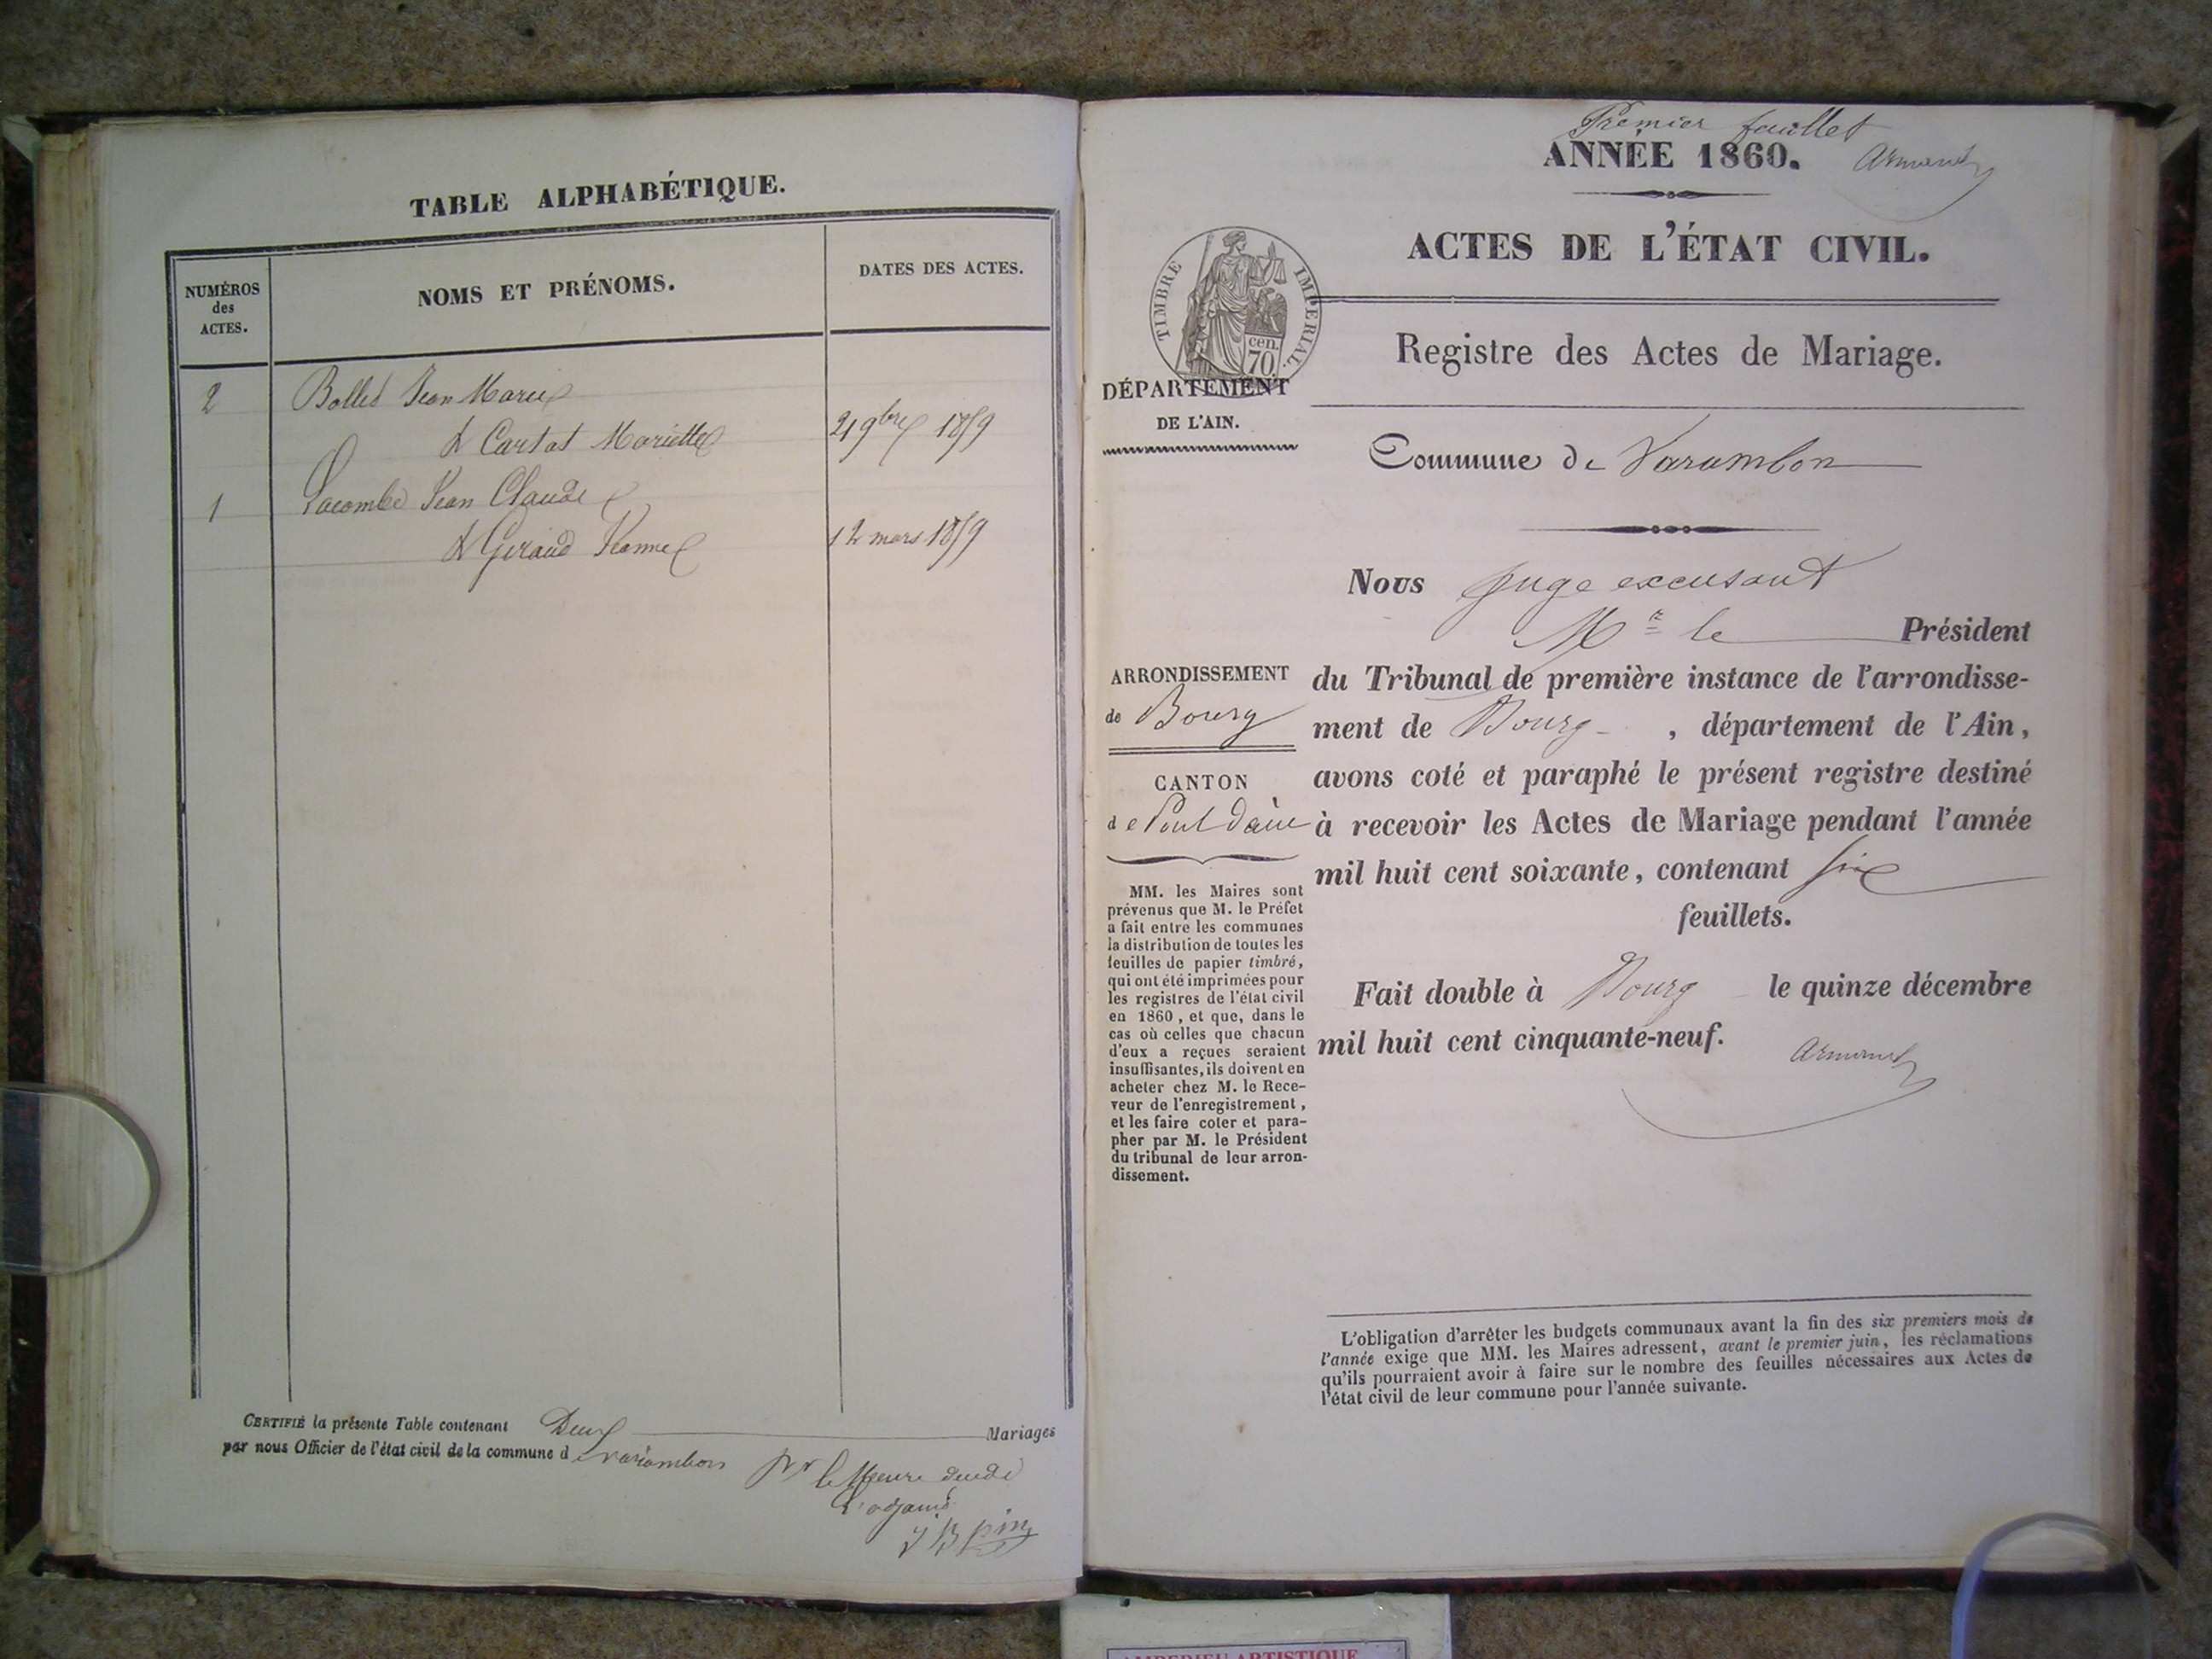 TABLE ALPHABÉTIQUE.
NUMÉROS
des
ACTES.
NOMS ET PRÉNOMS.
DATES DES ACTES.
2 Bollet Jean Marie
& Cartat Mariette 2 9bre 1859
1 Lacombe Jean Claude
& Giraud Jeanne 12 mars 1859
CERTIFIÉ la présente Table contenant Deux Mariages
par nous Officier de l'état civil de la commune de varambon
pr le Maire
l'adjoint
J B pin
Premier feuillet
ANNÉE 1860. Armand
ACTES DE L'ÉTAT CIVIL.
TIMBRE IMPERIAL.
cen.
70.
Registre des Actes de Mariage.
DÉPARTEMENT
DE L'AIN.
Commune de Varambon
Nous Juge excusant
Mr le Président
du Tribunal de première instance de l'arrondisse-
ment de Bourg , département de l'Ain,
avons coté et paraphé le présent registre destiné
à recevoir les Actes de Mariage pendant l'année
mil huit cent soixante, contenant six
feuillets.
Fait double à Bourg le quinze décembre
mil huit cent cinquante-neuf.
Armand
ARRONDISSEMENT
de Bourg
CANTON
de Pont d'ain
MM. les Maires sont
prévenus que M. le Préfet
a fait entre les communes
la distribution de toutes les
feuilles de papier timbré,
qui ont été imprimées pour
les registres de l'état civil
en 1860, et que, dans le
cas où celles que chacun
d'eux a reçues seraient
insuffisantes, ils doivent en
acheter chez M. le Rece-
veur de l'enregistrement,
et les faire coter et para-
pher par M. le Président
du tribunal de leur arron-
dissement.
L'obligation d'arrêter les budgets communaux avant la fin des six premiers mois de
l'année exige que MM. les Maires adressent, avant le premier juin, les réclamations
qu'ils pourraient avoir à faire sur le nombre des feuilles nécessaires aux Actes de
l'état civil de leur commune pour l'année suivante.
AMBERIEU ARTISTIQUE